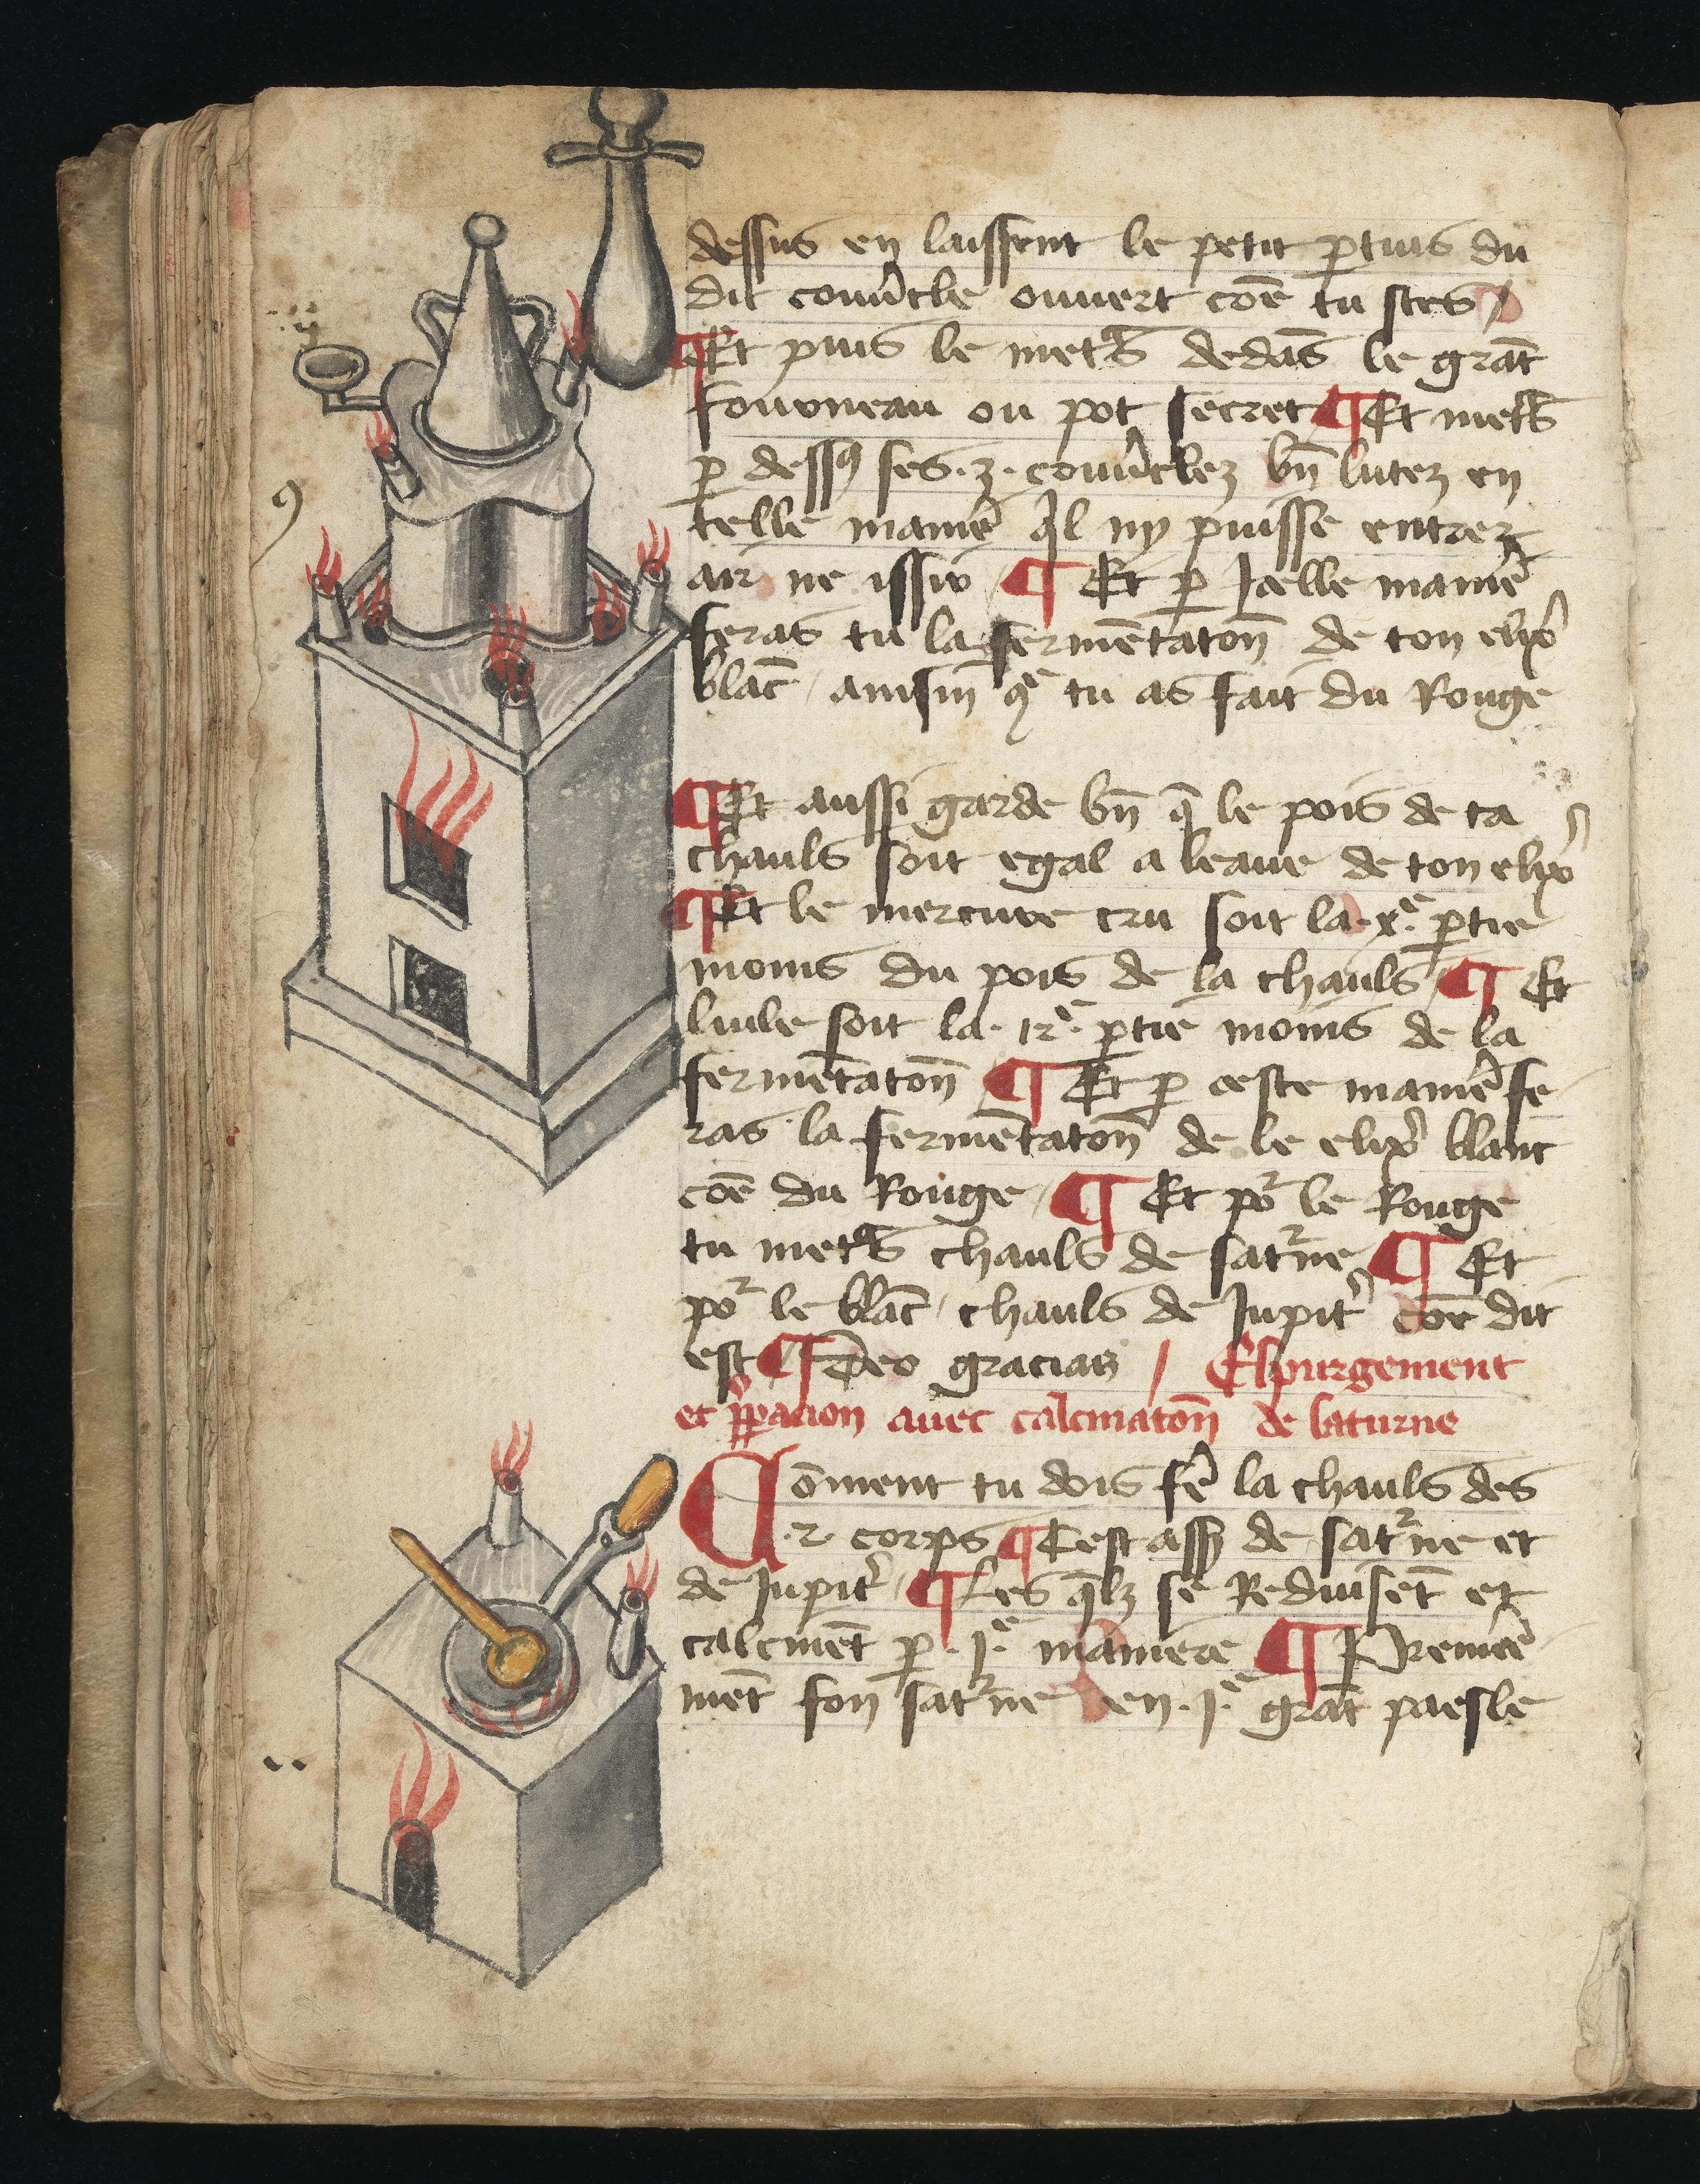 dessus en laissent le petit ꝑtuis du
dit couũcle ouuert cõe tu sces /
¶ Et puis le metᵃs dedãs le grãt
fourneau ou pot secret ¶ Et metᵃs
ꝑ dessꝰ ses .3. couũclez bñ lutez en
telle manie᷑ q̃l ny puisse entrer
air ne issir ¶ Et ꝑ Icelle manie᷑
feras tu la fermẽtatoñ de ton elix᷑
blãc / ainsin q̃ tu as fait du Rouge
¶ Et aussi garde bñ q̃ le pois de ta
chauls soit egal a leaue de ton elix᷑
¶ Et le mercure cru soit la .xᵉ. ꝑtie
moins du pois de la chauls / ¶ Et
luile soit la .12ᵉ. ꝑtie moins de la
fermẽtatoñ ¶ Et ꝑ ceste manie᷑ fe
ras la fermẽtatoñ de le elix᷑ blanc
cõe du Rouge / ¶ Et poʳ le Rouge
tu metᵃs chauls de satʳne ¶ Et
poʳ le blãc / chauls de Jupit᷑ cõe dit
est ¶ Deo gracias / Espurgement
et p̃ꝑacion auec calcinatoñ de saturne
Cõment tu dois fe᷑ la chauls des
.2. corps ¶ Cest assȝ de satʳne et
de Jupit᷑ / ¶ Les q̃lȝ se Reduisẽt et
calcinẽt ꝑ .1ᵉ. maniere ¶ Premie᷑
mẽt fon satʳne en .1ᵉ. grãt paesle